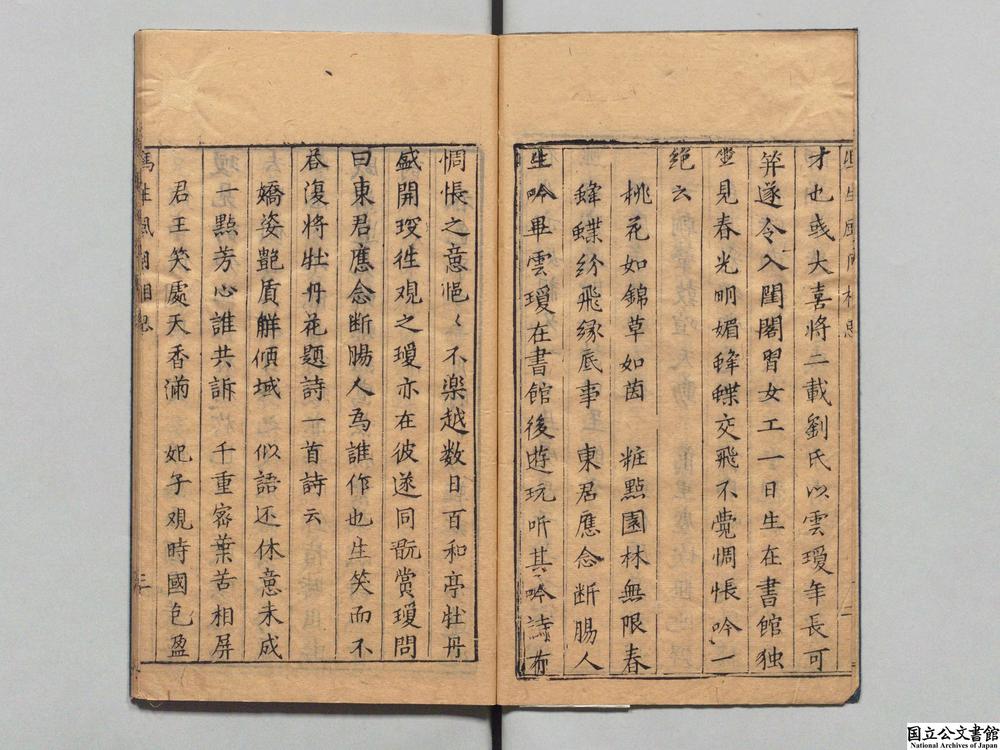 才也彧大喜將二載劉氏以雲瓊年長可
筓遂令入閨閣習女工一日生在書館独
坐見春光明媚蜂蝶交飛不覺惆悵吟一
絶云
桃花如錦草如茵　粧點園林無限春
蜂蝶紛飛縁底事　東君應念断腸人
生吟畢雲瓊在書館後遊玩听其吟詩有
惆悵之意悒〻不楽越数日百和亭牡丹
盛開瓊徃观之瓊亦在彼遂同翫賞瓊問
曰東君應念断腸人為誰作也生笑而不
答復將牡丹花题詩一首詩云
嬌姿艶質觧傾城　似語还休意未成
一點芳心誰共訴　千重宻葉苦相屏
君王笑處天香滿　妃子观時國色盈
馮生風月相思
三
国立公文書館
National Archives of Japan